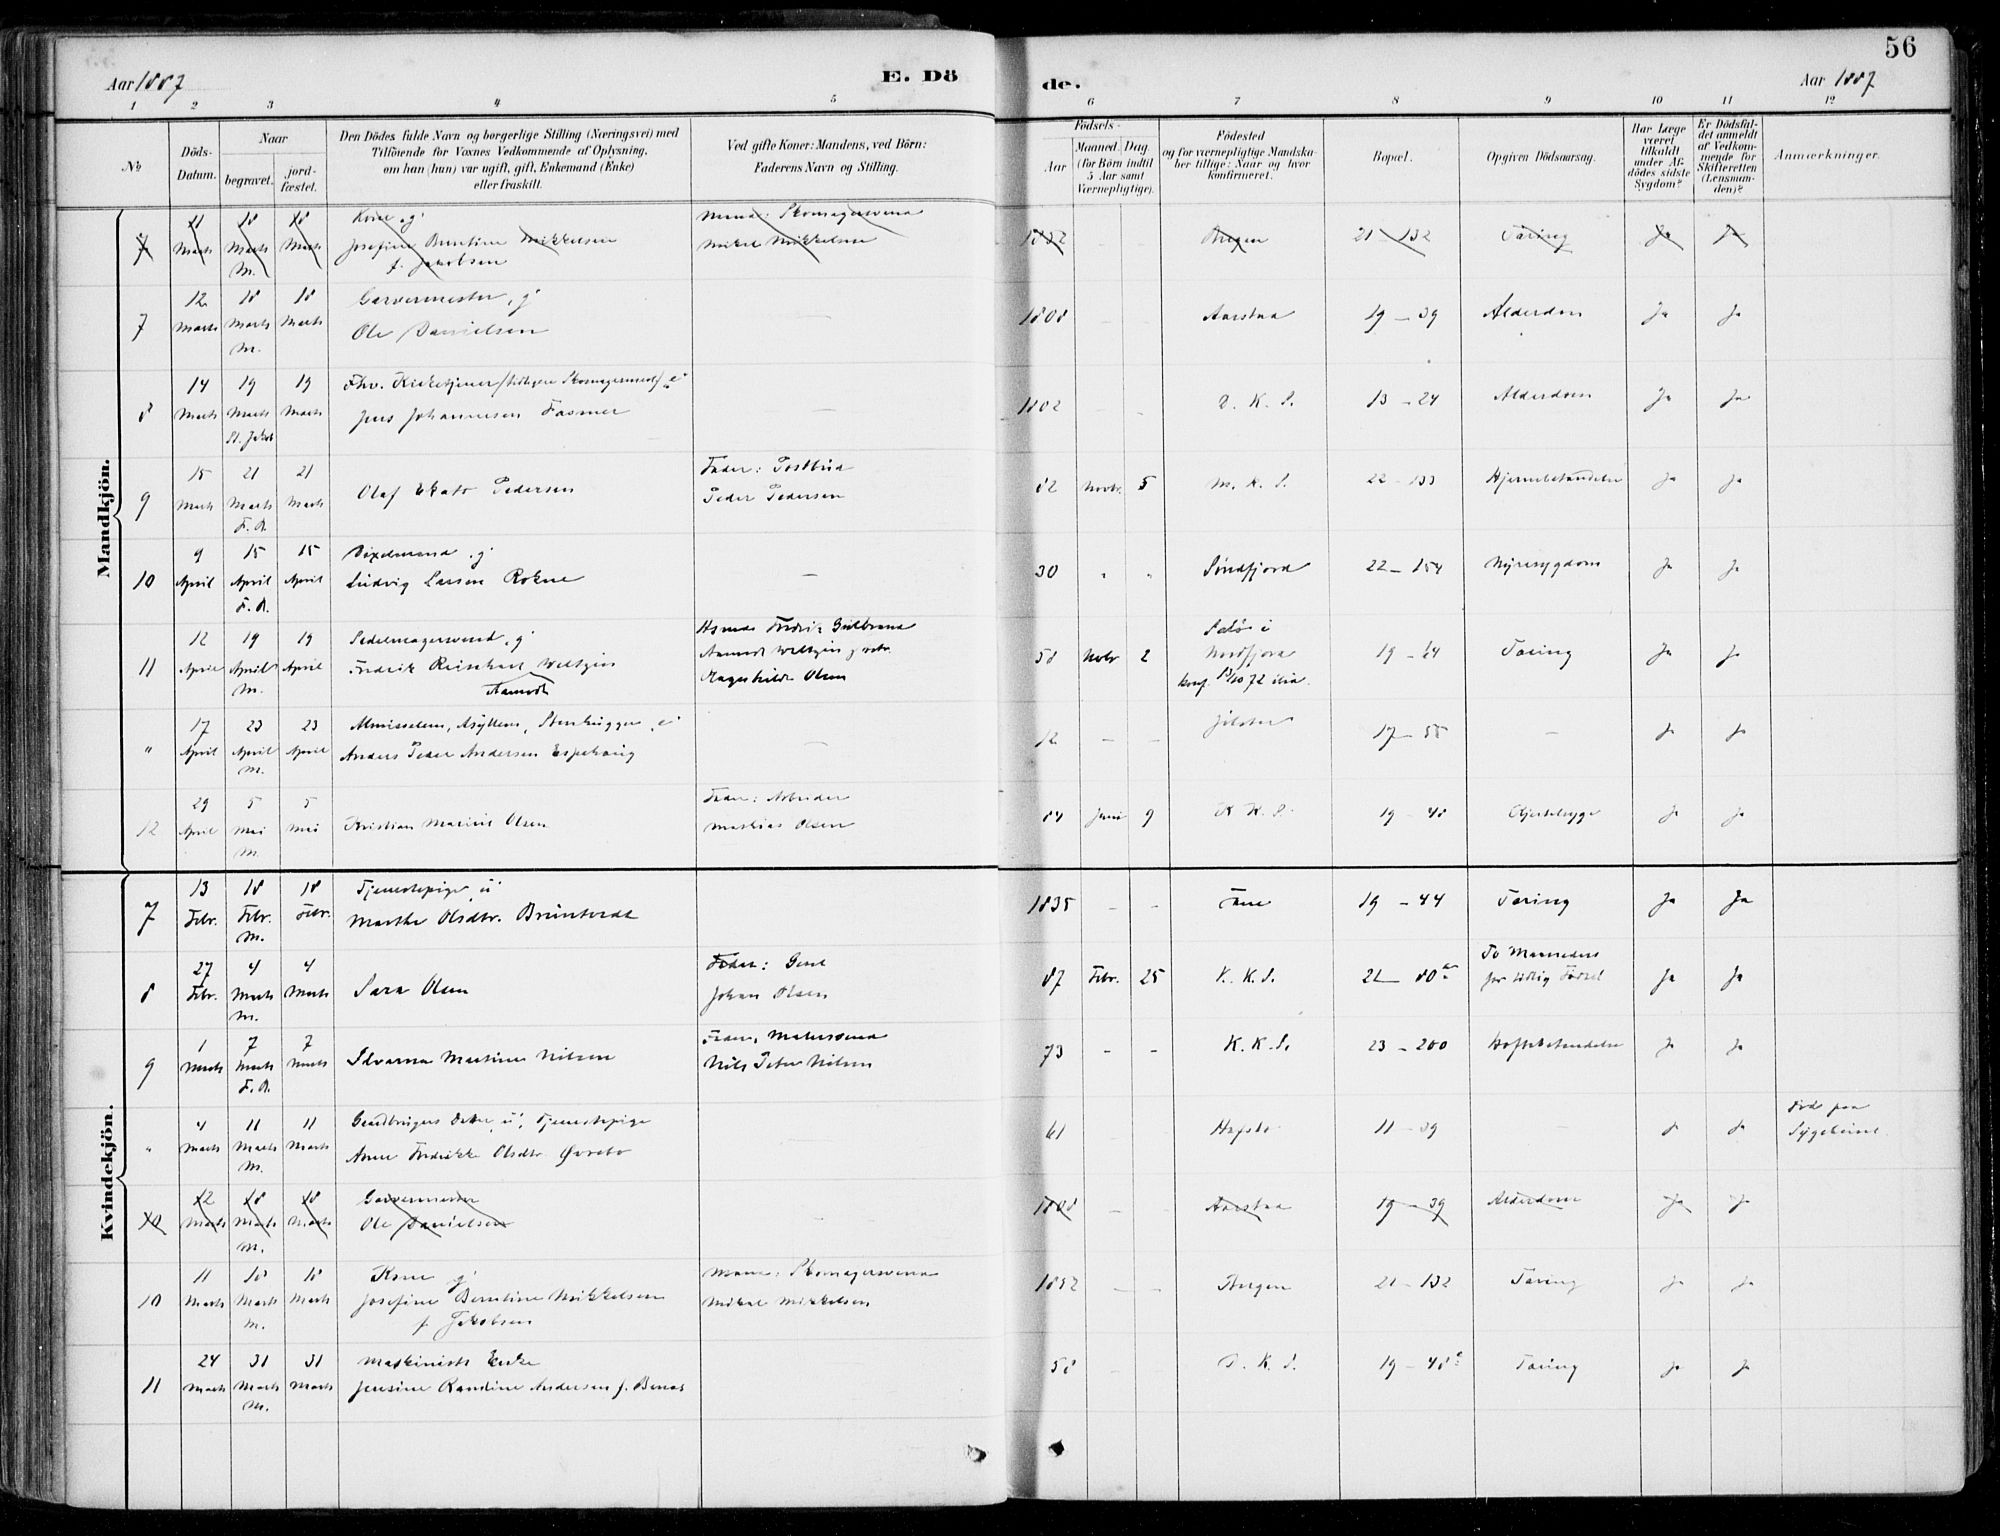 56
Aar 1887
E. Dö
de.
Aar 1887
1 2 3 4 5 6 7 8 9 10 11 12
No
Döds-Datum.
Naar
begravet.
jord-fæstet.
Den Dödes fulde Navn og borgerlige Stilling (Næringsvei) med
Tilföiende for Voxnes Vedkommende af Oplysning,
om han (hun) var ugift, gift, Enkemand (Enke)
eller fraskilt.
Ved gifte Koner: Mandens, ved Börn:
Faderens Navn og Stilling.
Födsels-
Aar
Maaned. Dag.
(for Börn indtil
5 Aar samt
Værnepligtige).
Födested
og for værnepligtige Mandska-
ber tillige: Naar og hvor
konfirmeret.
Bopæl.
Opgiven Dödsaarsag.
Har Læge
været
tilkaldt
under Af-
dödes sidste
Sygdom?
Er Dödsfal-
det anmeldt
af Vedkom-
mende for
Skifteretten
(Lensman-
den)?
Anmærkninger.
Mandkjön.
7 11 Marts 18 Marts M. 18 Marts Kone, g. Mand: Skomagersvend
Josefine Berntine Mikkelsen Mikal Mikkelsen 1852 Bergen 21 - 132 Tæring Ja Ja
f. Jakobsen
7 12 Marts 18 Marts M. 18 Marts Garvermester, g.
Ole Danielsen 1808 - - Aarstad 19 - 39 Alderdom Ja Ja
8 14 Marts 19 Marts St. Jakob 19 Marts Fhv. Kirketjener
Jens Johannesen Fasmer - 1802 - - D. K. S. 13 - 24 Alderdom Ja Ja
9 15 Marts 21 Marts F. A. 21 Marts Fader: Postbud
Olaf Pedersen Peder Pedersen 82 Novbr. 5 M. K. S. 22 - 133 Hjernebetændelse Ja Ja
10 9 April 15 April F. A. 15 April g.
Ludvig Larsen Rokne - 30 " " Søndfjord 22 - 154 Nyresygdom Ja Ja
11 12 April 19 April M. 19 April Sadelmagersvend, g. Fredrik
Fredrik Aamodt Olsen 58 Novbr 2 Selø i
Nordfjord
konf. 13/10 72 ibid. 19 - 24 Tæring Ja Ja
" 17 April 23 April M. 23 April
Anders Peder Andersen Espehaug - 12 - - Jølster 17 - 55 - Ja Ja
12 29 April 5 Mai M. 5 Mai Fader: Arbeider
Kristian Marius Olsen Mathias Olsen 84 Juni 9 K. K. S. 19 - 48 Ja Ja
Kvindekjön.
7 13 Febr. 18 Febr. M. 18 Febr. Tjenestepige, u.
Marthe Olsdtr. 1835 - - Fane 19 - 44 Tæring Ja Ja
8 27 Febr. 4 Marts M. 4 Marts Fader:
Sara Olsen Johan Olsen 87 Febr. 25 K. K. S. 21 - 80 To Maaneder
for tidlig Fødsel Ja Ja
9 1 Marts 7 Marts F. A. 7 Marts Fader, Malersvend
Martine Nilsen Nils Peter Nilsen 73 - - K. K. S. 23 - 200 Hoftebetændelse Ja Ja
" 4 Marts 11 Marts M. 11 Marts Gaardbrugers Datter, u., Tjenestepige
Anne Fredrikke Olsdtr. Øvrebø - 61 - - Hafslo 11 - 39 - Død paa
Sygehuset.
10 12 Marts 18 Marts M. 18 Marts Garvermester
Ole Danielsen 1808 - - Aarstad 19 - 39 Alderdom Ja Ja
10 11 Marts 18 Marts M. 18 Marts Kone g. Mand: Skomagersvend
Josefine Berntine Mikkelsen Mikal Mikkelsen 1852 - - Bergen 21 - 132 Tæring Ja Ja
f. Jakobsen
11 24 Marts 31 Marts M. 31 Marts Maskinists Enke
Jensine Randine Andersen f. 58 - D. K. S. 19 - 48 Tæring Ja Ja